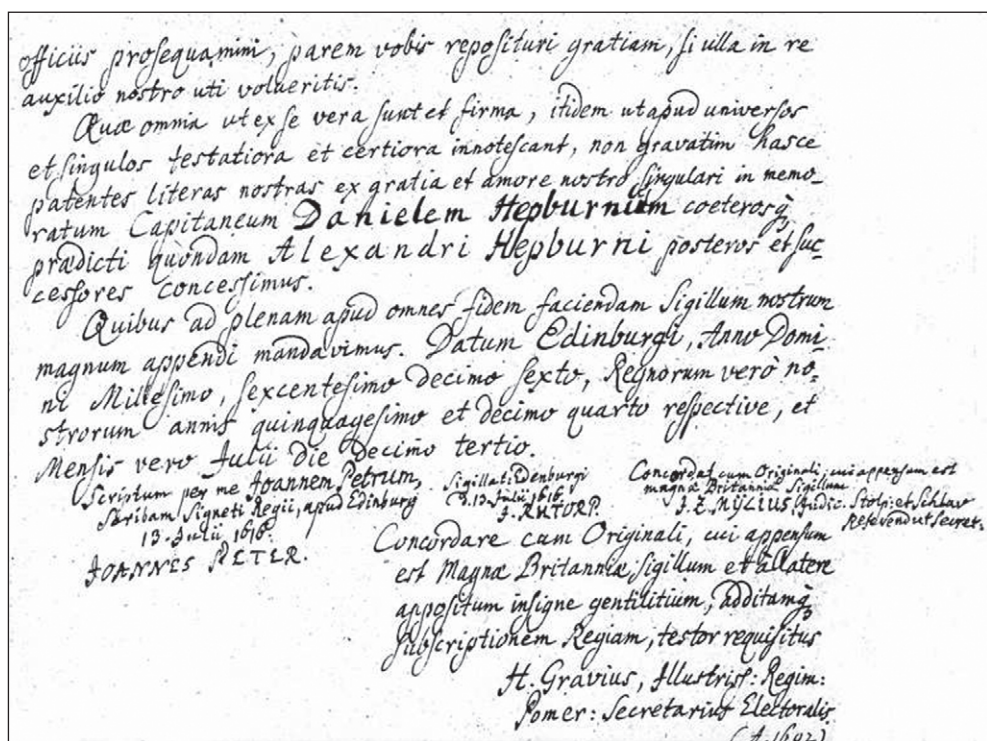 officiis prosequamini, parem vobis reposituri gratiam, si ulla in re
auxilio nostro uti volueritis.
Quæ omnia ut ex se vera sunt et firma, itidem ut apud universos
et singulos testatiora et certiora innotescant, non gravatim hasce
patentes literas nostras ex gratia et amore nostro singulari in memo-
ratum Capitaneum Danielem Hepburnium coeterosq3
prædicti quondam Alexandri Hepburni posteros et suc-
cessores concessimus.
Quibus ad plenam apud omnes fidem faciendam Sigillum nostrum
magnum appendi mandavimus. Datum Edinburgi, Anno Domi-
ni Millesimo, sexcentesimo decimo sexto, Regnorum verò no-
strorum annis quinquagesimo et decimo quarto respective, et
Mensis vero Julii die decimo tertio.
Scriptum per me Joannem Petrum,
Scribam Signeti Regii, apud Edinburg
13. Julii 1616.
JOANNES PETER.
Sigillat: Edenburgi
d. 13 Julii 1616.
J. RHTORP.
Concordat cum Originali, cui appensum est
magnæ Britanniæ Sigillum
J. Z. MYLIUS, Judic. Stolp: et Schlav
Referend et Secret:
Concordare cum Originali, cui appensum
est Magnæ Britanniæ Sigillum et a latere
appositum insigne gentilitium, additamq3
subscriptionem Regiam, testor requisitus
H. Gravius, Illustriss: Regim:
Pomer: Secretarius Electoralis
(A. 1692)